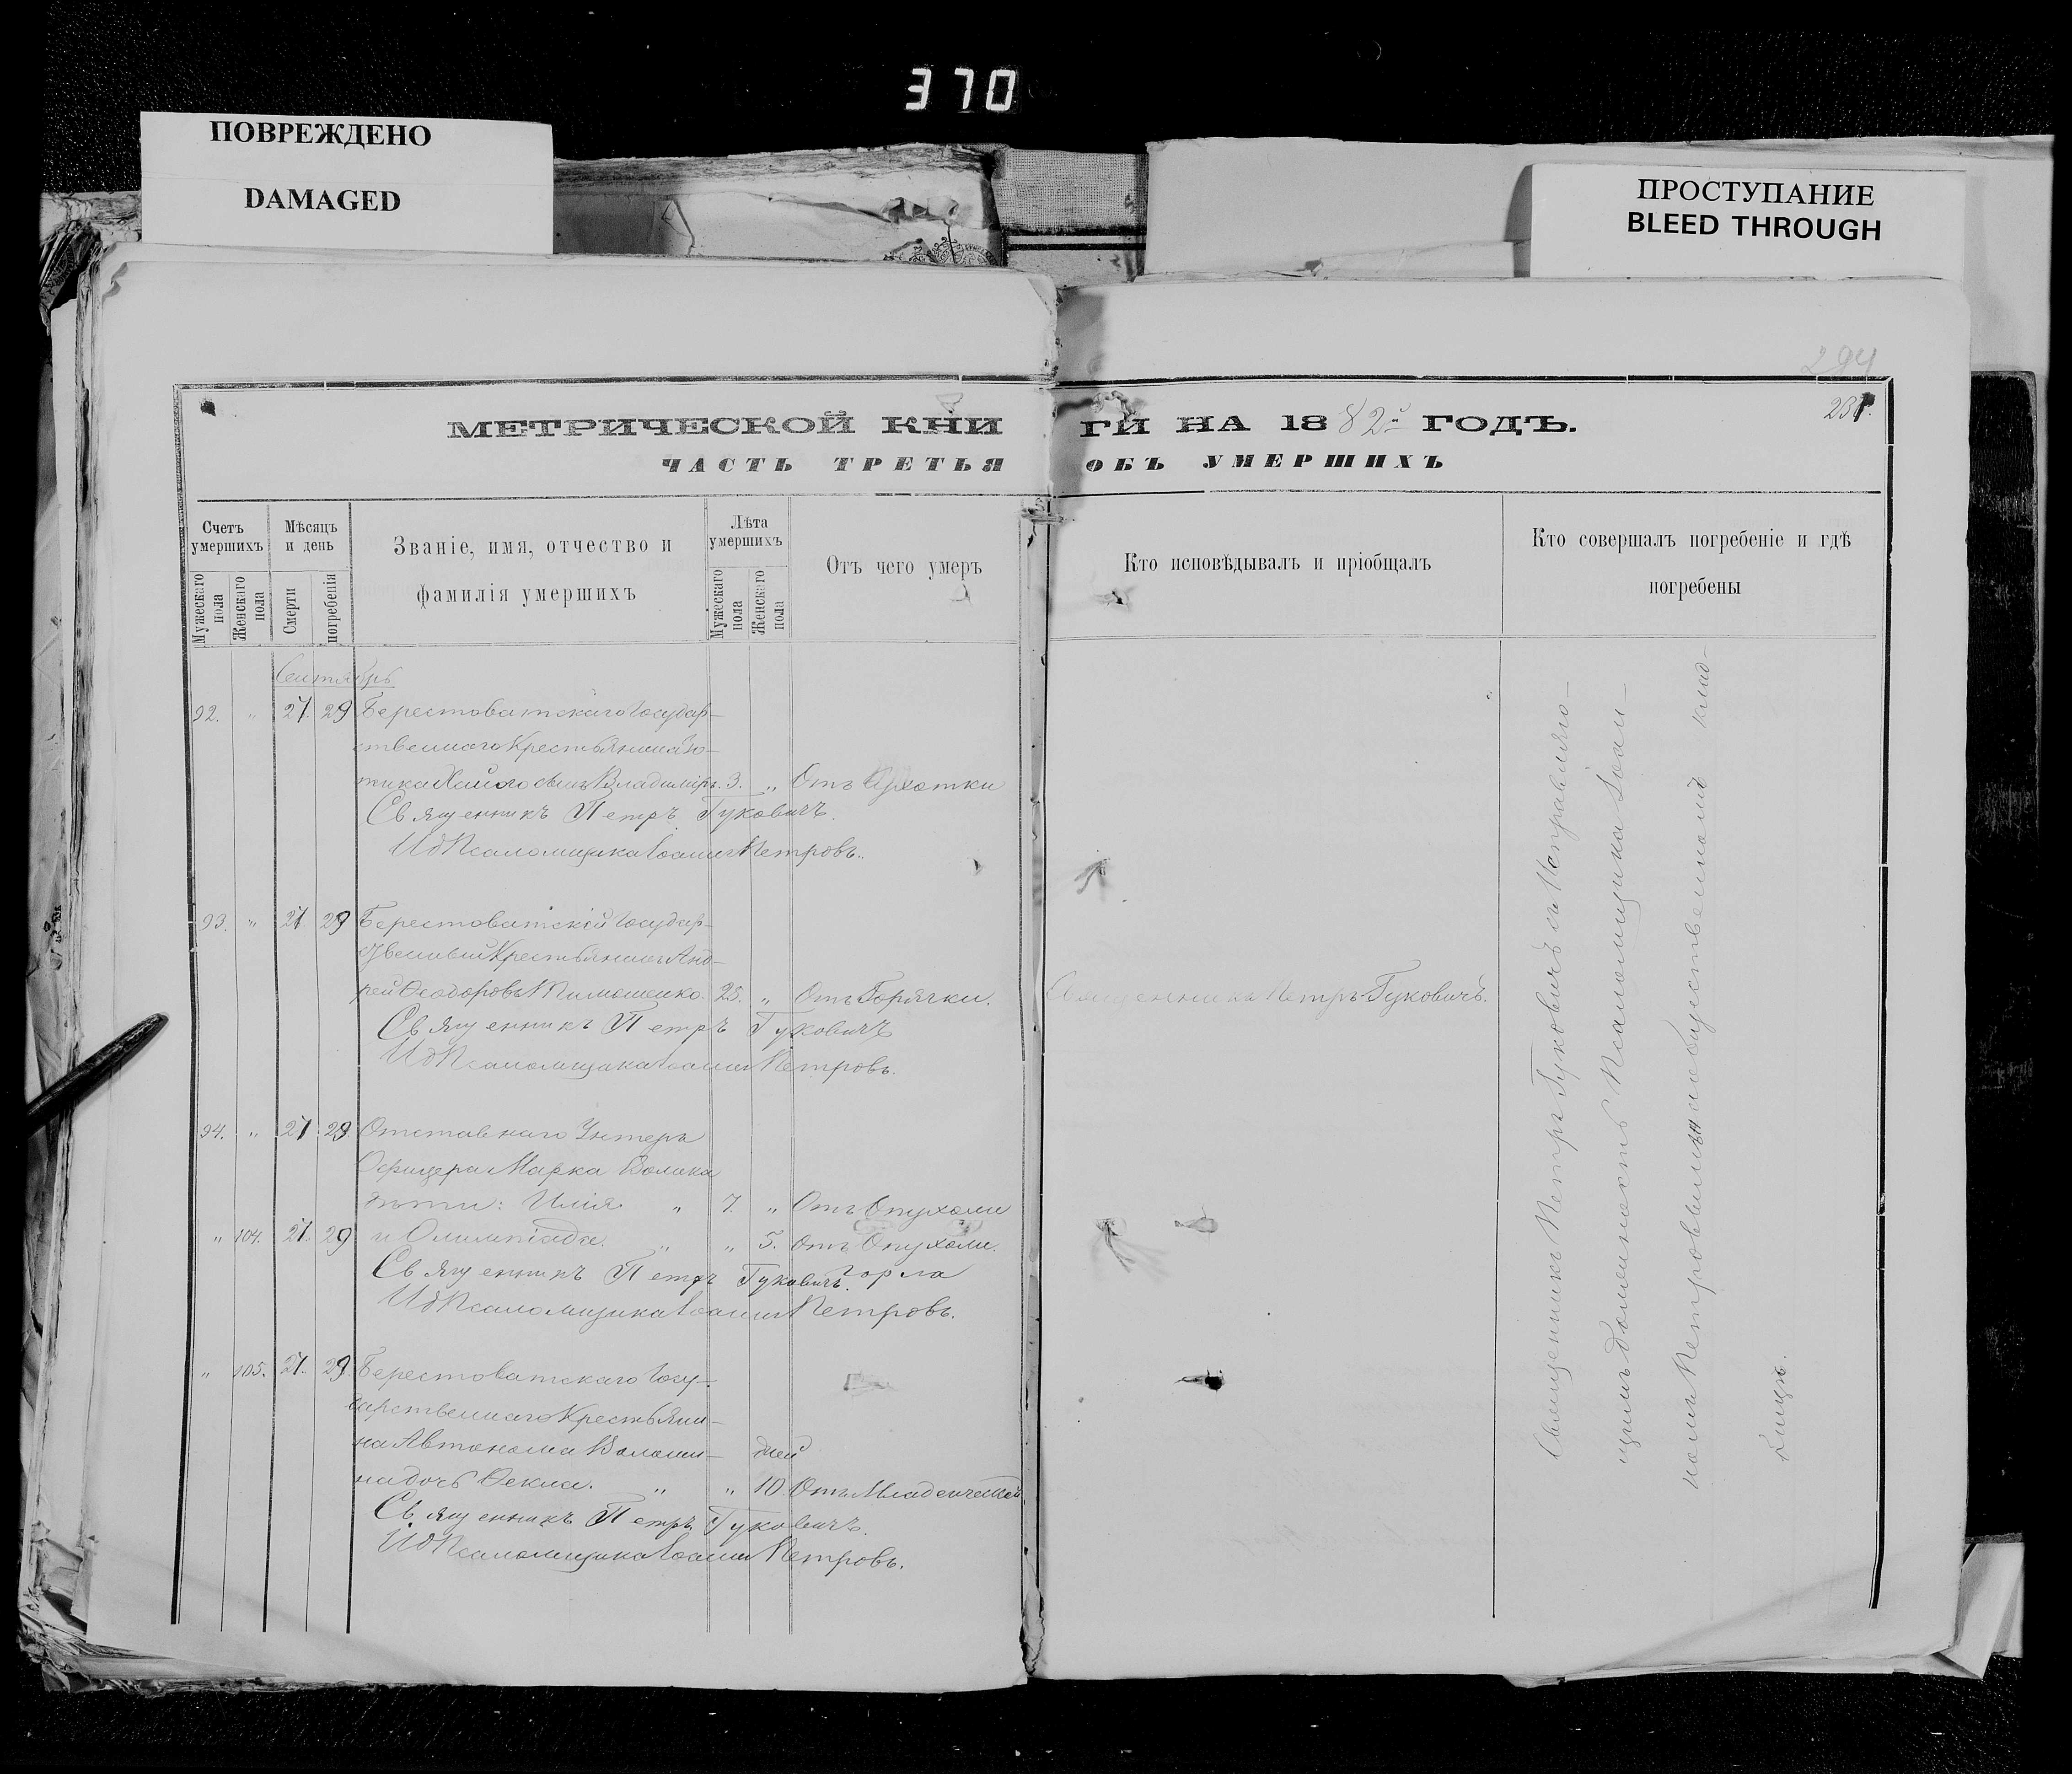 370
ПОВРЕЖДЕНО
DAMAGED
ПРОСТУПАНИЕ
BLEED THROUGH
294
231.
МЕТРИЧЕСКОЙ КНИГИ НА 1882й ГОДЪ.
ЧАСТЬ ТРЕТЬЯ ОБЪ УМЕРШИХЪ
Счетъ умершихъ
Мужескаго пола
Женскаго пола
Мѣсяцъ и день
Смерти
погребенія
Званіе, имя, отчество и
фамилія умершихъ
Лѣта умершихъ
Мужескаго пола
Женскаго пола
Отъ чего умеръ
Кто исповѣдывалъ и пріобщалъ
Кто совершалъ погребеніе и гдѣ
погребены
Сентябрь
92. " 27. 29 Берестоватскаго Государ-
ственнаго Крестьянина
сынъ Владиміръ. 3. " Отъ
Священникъ Петръ Гуковичъ.
ИД Псаломщика Іоаннъ Петровъ.
93. " 27 29 Берестоватскій Государ-
Крестьянинъ Анд-
рей Ѳеодоровъ 25. " Отъ Горячки. Священникъ Петръ Гуковичъ.
Священникъ Петръ Гуковичъ
ИД Псаломщика Іоаннъ Петровъ.
94. " 27 29. Отставнаго Унтеръ
Офицера Марка
дѣти: Илія " 7. " Отъ Опухоли
" 104. 27. 29 и Олимпіада. " " 5. Отъ Опухоли.
горла
Священникъ Петръ Гуковичъ.
ИД Псаломщика Іоаннъ Петровъ.
" 105. 27. 29. Берестоватскаго Госу-
дарственнаго Крестьяни-
на Автонома Волоши- дней
на дочь Ѳекла. " " 10 Отъ Младенческой
Священникъ Петръ Гуковичъ.
ИД Псаломщика Іоаннъ Петровъ.
Священникъ Петръ Гуковичъ съ Исправляю-
щимъ должность Псаломщика Іоан-
номъ Петровымъ на общественномъ клад-
бищѣ.